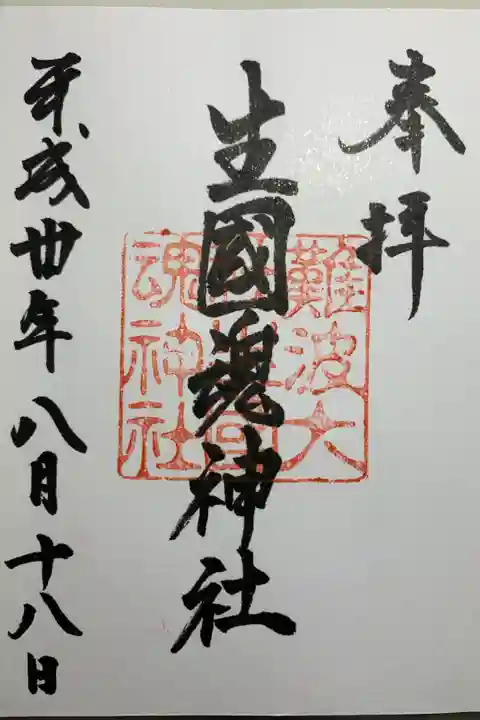 奉拝
生國魂神社
難波大
魂神社
平成卅年八月十八日